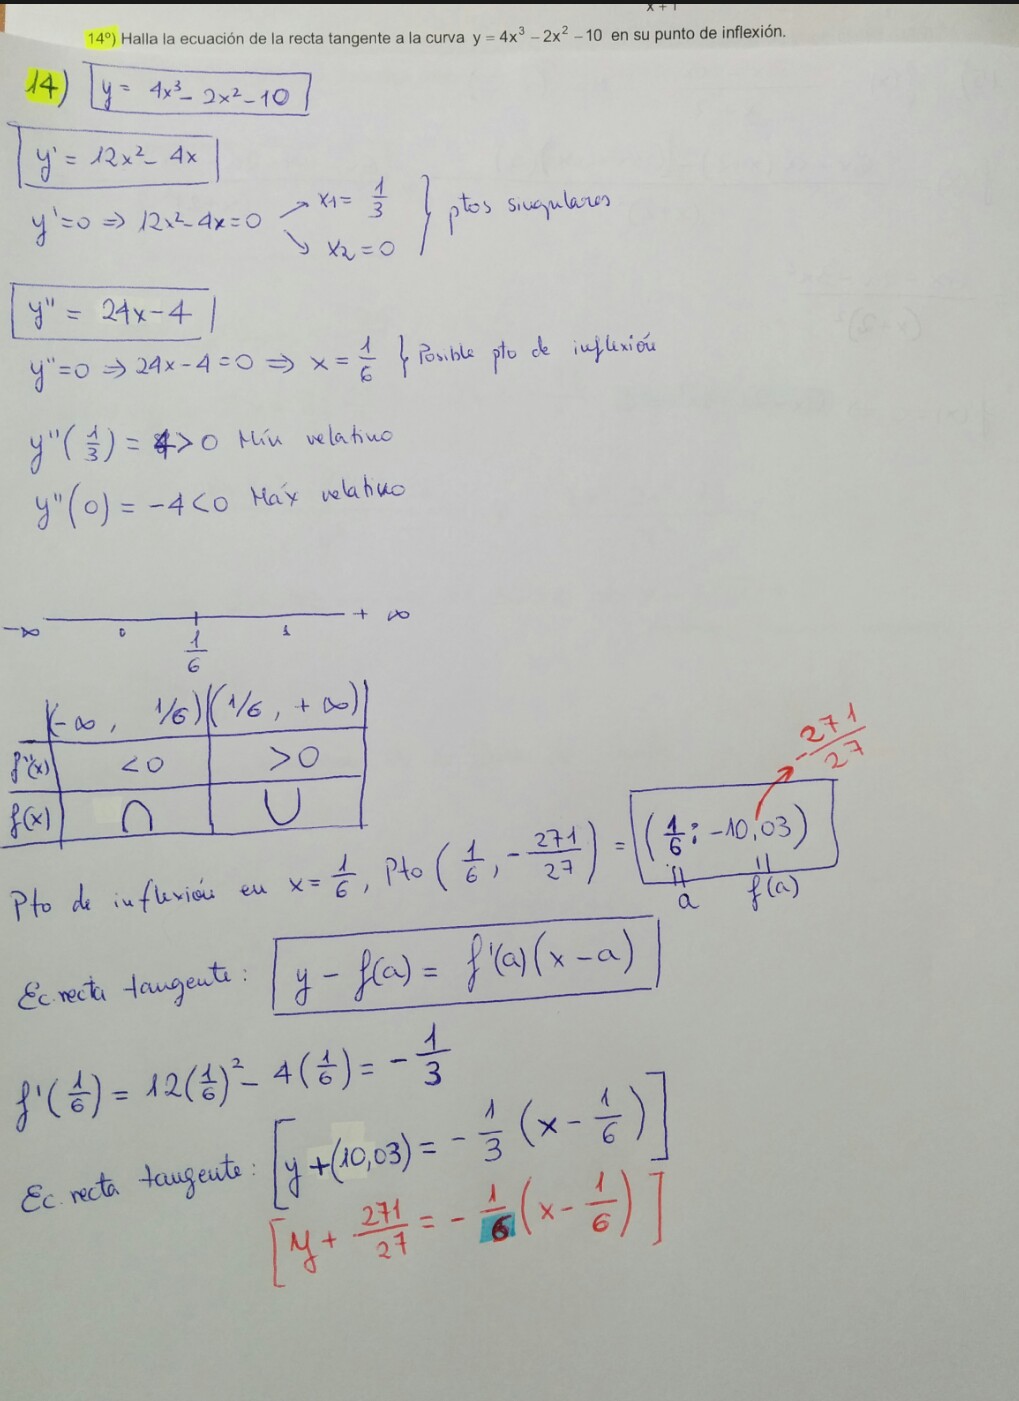 x + 1
14º) Halla la ecuación de la recta tangente a la curva y = 4x³ – 2x² – 10 en su punto de inflexión.
14) y = 4x³ - 2x² - 10
y' = 12x² - 4x
y' = 0 ⇒ 12x² - 4x = 0 → x1 = 1/3 → x2 = 0 } ptos singulares
y'' = 24x - 4
y'' = 0 ⇒ 24x - 4 = 0 ⇒ x = 1/6 } Posible pto de inflexión
y''(1/3) = 4 > 0 Mín relativo
y''(0) = -4 < 0 Máx relativo
-∞ 0 1/6 1 + ∞
(-∞, 1/6) (1/6, +∞)
f''(x) <0 >0
f(x) ∩ ∪
-271/27
Pto de inflexión en x = 1/6, Pto (1/6, -271/27) = (1/6; -10,03)
a f(a)
Ec. recta tangente: y - f(a) = f'(a)(x - a)
f'(1/6) = 12(1/6)² - 4(1/6) = -1/3
Ec. recta tangente: [y + (10,03) = -1/3 (x - 1/6)]
[y + 271/27 = -1/6 (x - 1/6)]